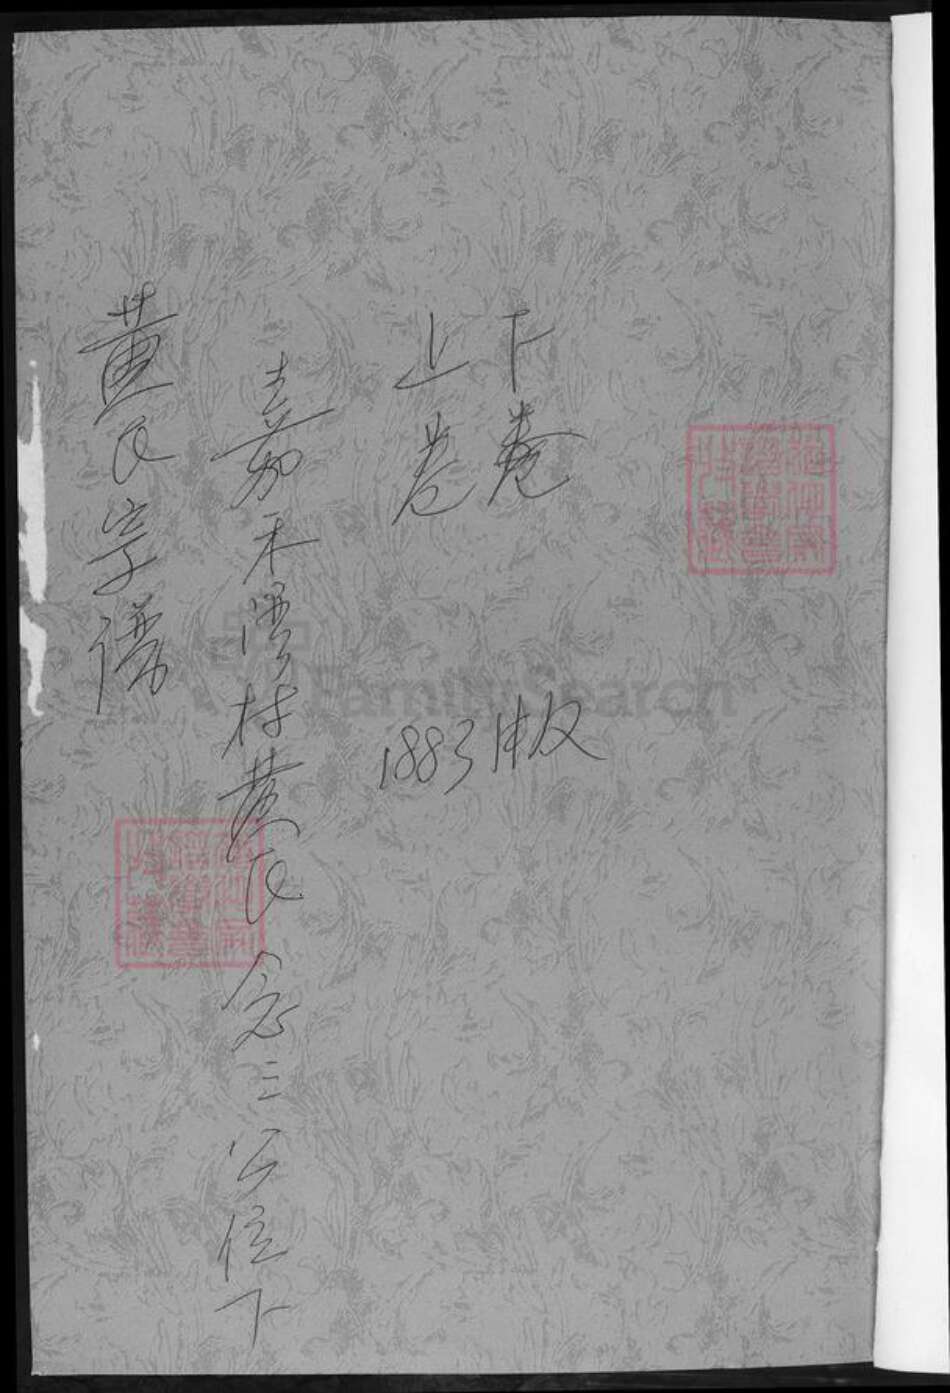 下卷
上卷
1883版
嘉禾湾村黄氏念三公位下
黄氏宗谱
FamilySearch